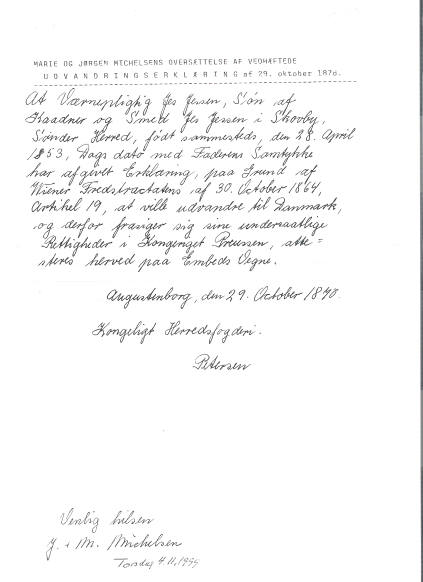 MARIE OG JØRGEN MICHELSENS OVERSÆTTELSE AF VEDHÆFTEDE
UDVANDRINGSERKLÆRING af 29. oktober 1870.
At Værnepligtig Jes Jessen, Søn af
Kaadner og Smed Jes Jessen i Skovby,
Sønder Herred, født sammesteds, den 28. April
1853, Dags dato med Faderens Samtykke
har afgivet Erklæring, paa Grund af
Wiener Fredstractatens af 30. October 1864,
Artikel 19, at ville udvandre til Danmark,
og derfor frasiger sig sine undersaatlige
Rettigheder i Kongeriget Preussen, atte=
steres herved paa Embeds Vegne.
Augustenborg, den 29. October 1870.
Kongeligt Herredsfogderi.
Petersen
Venlig hilsen
J. + M. Michelsen
Torsdag 4.11.1999